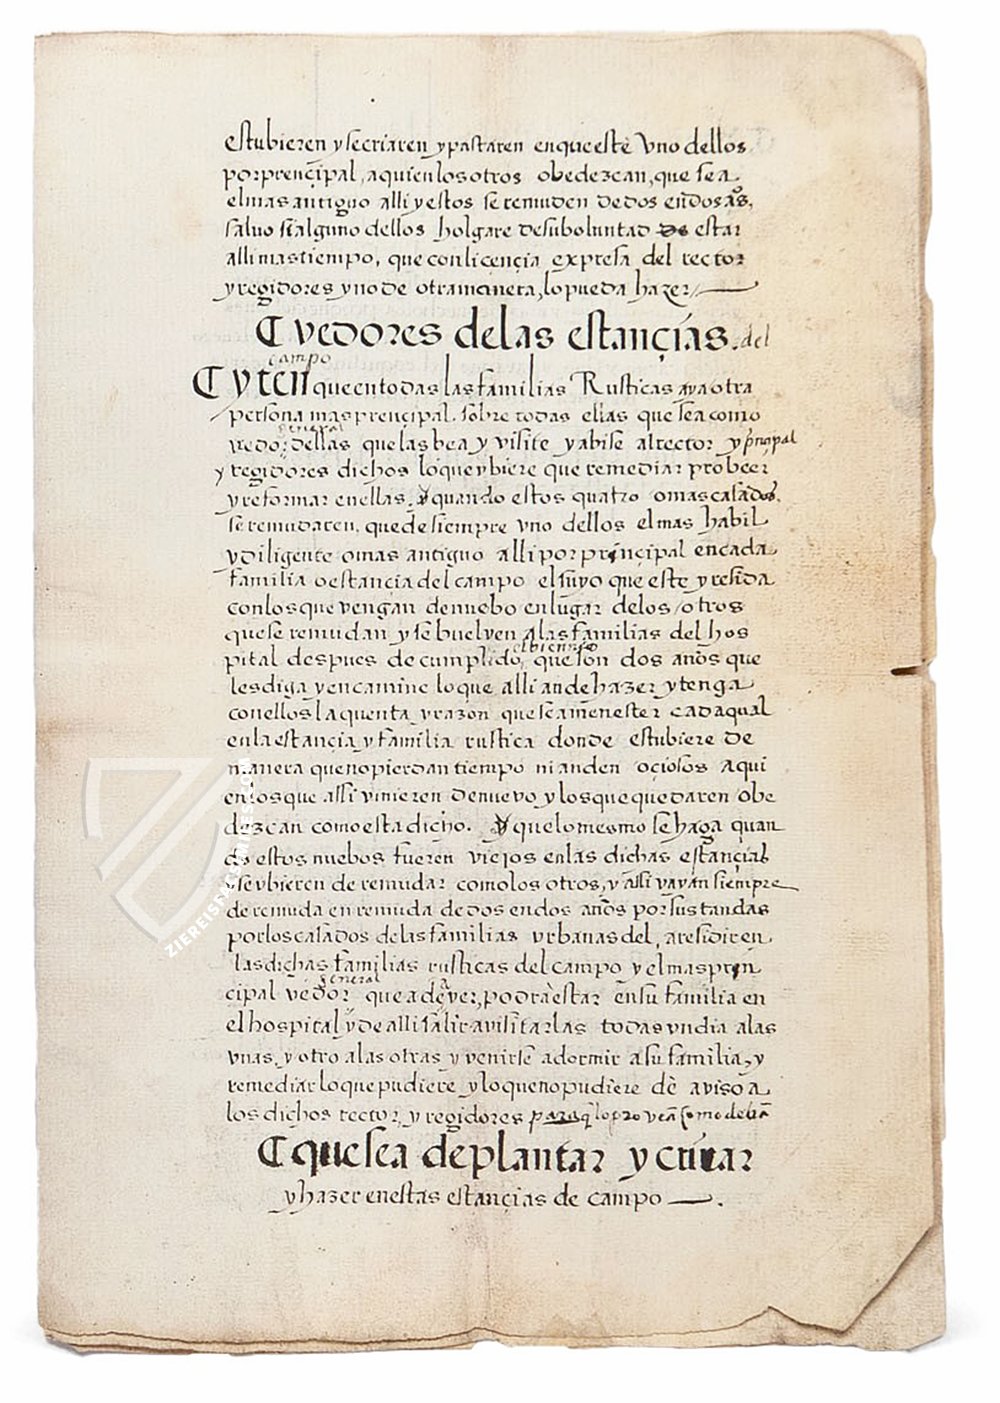 estubieren y se criaren y pastaren en que este vno dellos
por prençipal, a quien los otros obedezcan, que sea
el mas antiguo alli y estos se remuden de dos en dos aõs,
saluo si alguno dellos holgare de su boluntad de estar
alli mas tiempo, que con liçençia expresa del rector
y regidores y no de otra manera, lo pueda hazer
Vedores de las estançias. del
campo
Yten que en todas las familias Rusticas aya otra
persona mas prençipal. sobre todas ellas que sea como
general
vedor dellas que las bea y visite y abise al rector y prinçipal
y regidores dichos lo que vbiere que remediar probeer
y reformar en ellas. Y quando estos quatro o mas casados.
se remudaren, quede siempre vno dellos el mas habil
y diligente o mas antiguo alli por prinçipal en cada
familia o estançia del campo el suyo que este y resida
con los que vengan de nuebo en lugar de los otros
que se remudan y se buelven a las familias del hos
el biennio
pital despues de cumplido, que son dos anõs que
les diga y encamine lo que alli an de hazer y tenga
con ellos la quenta y razon que sea menester cada qual
en la estançia y familia rustica donde estubiere de
manera que no pierdan tiempo ni anden oçiosos Aqui
en los que assi vinieren de nuevo y los que quedaren obe
dezcan como esta dicho. Y que lo mesmo se haga quan
do estos nuebos fueren viejos en las dichas estançias
y se vbieren de remudar como los otros, y assi vayan siempre
de remuda en remuda de dos en dos anõs por sus tandas
por los casados de las familias vrbanas del, a residir en
las dichas familias rusticas del campo y el mas prin
general
çipal vedor que a de ver, podra estar en su familia en
el hospital y de alli salir a visitarlas todas vn dia a las
vnas, y otro a las otras y venirse a dormir a su familia, y
remediar lo que pudiere y lo que no pudiere de aviso a
los dichos rector, y regidores para q̃ lo provean como deban
que sea de plantar y criar
y hazer en estas estançias de campo
ZIEREISFACSIMILES.COM